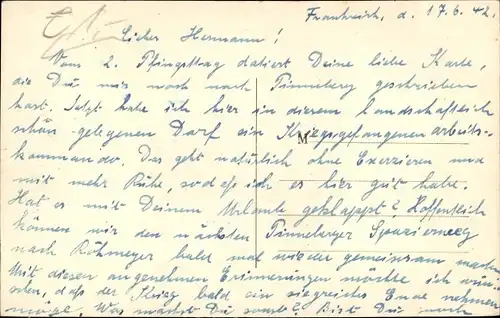 Frankreich, d. 17.6.42.
Lieber Hermann!
Vom 2. Pfingsttag datiert Deine liebe Karte,
die Du mir noch nach Pinneberg geschrieben
hast. Jetzt habe ich hier in diesem landschaftlich
schön gelegenen Dorf ein Kriegsgefangenenarbeits-
kommando. Das geht natürlich ohne Exerzieren und
mit mehr Ruhe, sodaß ich es hier gut habe.
Hat es mit Deinem Urlaub geklappt? Hoffentlich
können wir den nächsten Pinneberger Spazierweg
nach Röhmeyer bald mal wieder gemeinsam machen.
Mit diesen angenehmen Erinnerungen möchte ich wün-
schen, daß der Krieg bald ein siegreiches Ende nehmen
möge. Was machst Du sonst? Bist Du noch